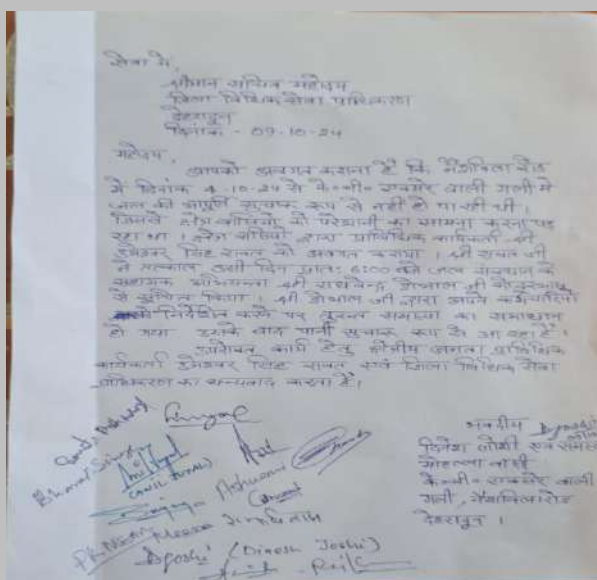 सेवा में,
श्रीमान सचिव महोदय
जिला विधिक सेवा प्राधिकरण
देहरादून
दिनांक - 09-10-24
महोदय,
आपको अवगत कराना है कि नैशविला रोड
में दिनांक 4-10-24 से के०-सी० वाली गली में
जल की आपूर्ति सुचारू रूप से नहीं हो पा रही थी।
जिससे क्षेत्र वासियों को परेशानी का सामना करना पड़
रहा था। क्षेत्र वासियों द्वारा प्राविधिक कार्यकर्ता श्री
उमेश्वर सिंह रावत को अवगत कराया। श्री रावत जी
ने तत्काल उसी दिन प्रातः 6:00 बजे जल संस्थान के
सहायक अभियन्ता श्री राघवेन्द्र डोभाल जी को
से सूचित किया। श्री डोभाल जी द्वारा अपने कर्मचारियों
को निर्देशित करने पर तुरन्त समस्या का समाधान
हो गया उसके बाद पानी सुचारू रूप से आ रहा है।
उपरोक्त कार्य हेतु क्षेत्रीय जनता प्राविधिक
कार्यकर्ता उमेश्वर सिंह रावत एवं जिला विधिक सेवा
प्राधिकरण का धन्यवाद करता है।
भवदीय
दिनेश जोशी एवं समस्त
मोहल्ला वासी
के०-सी० वाली
गली, नैशविला रोड
देहरादून।
(ANIL)
Ashwani
Meena
Djoshi (Dinesh Joshi)